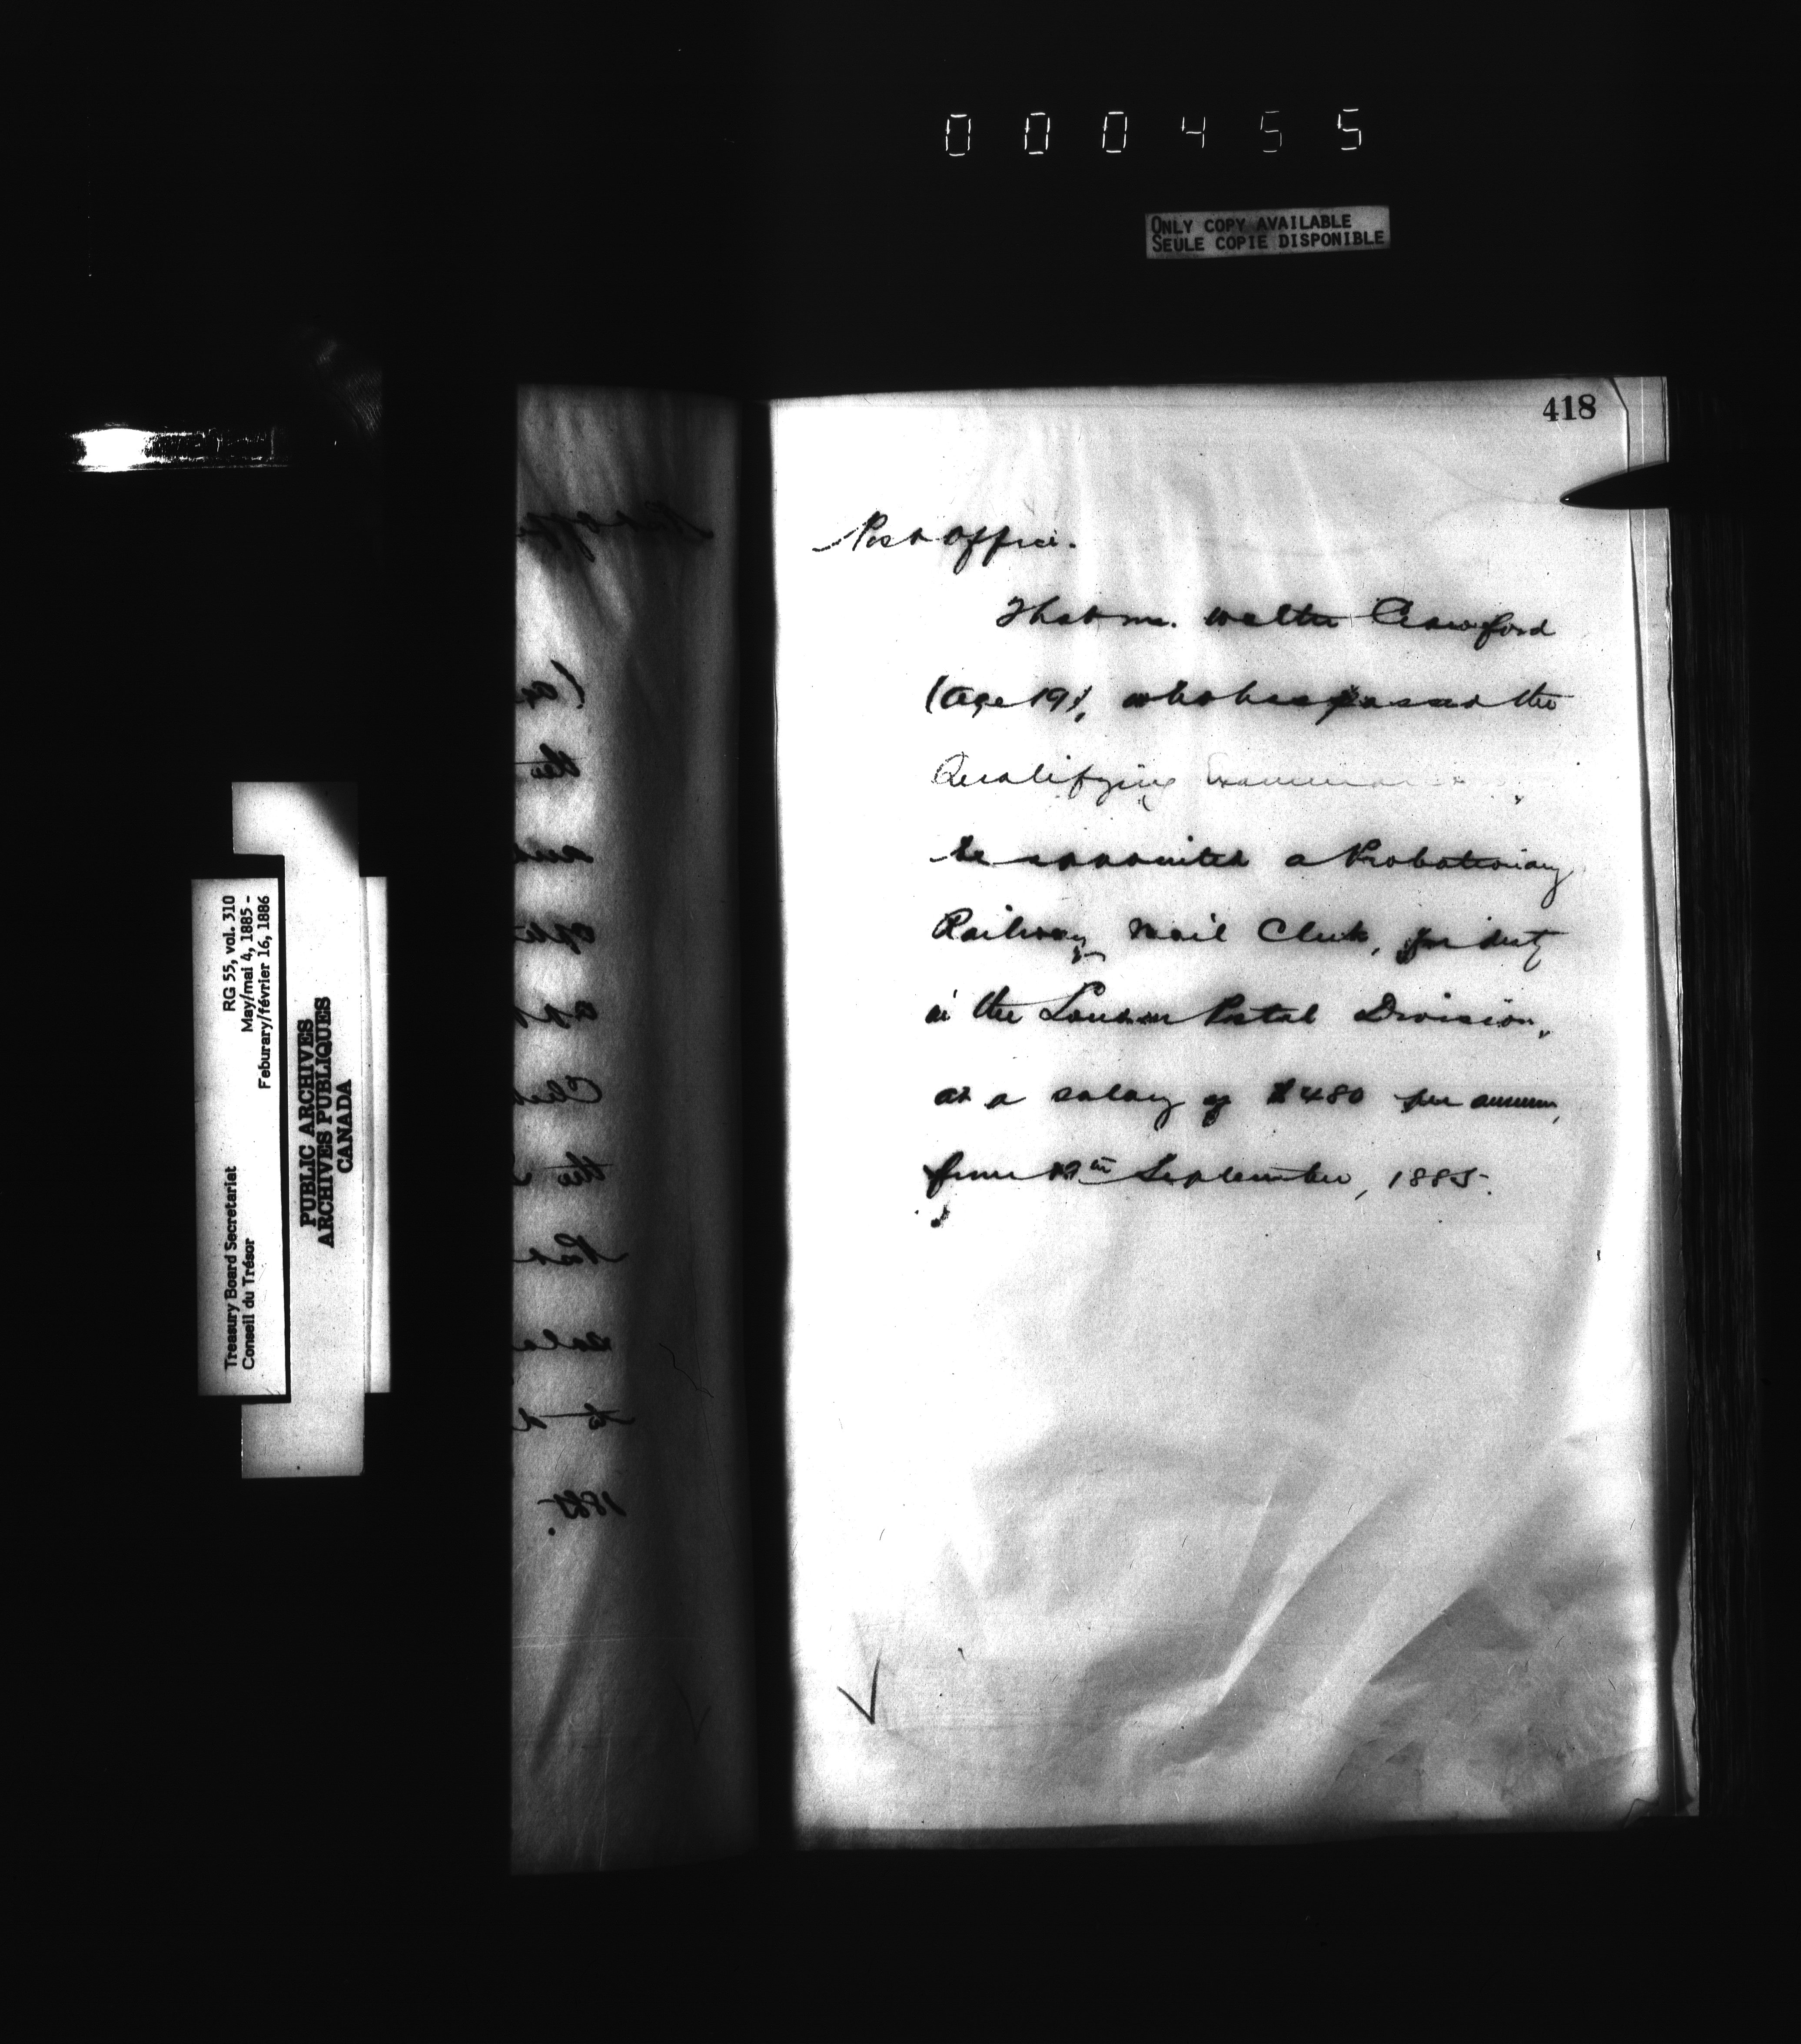 000455
ONLY COPY AVAILABLE
SEULE COPIE DISPONIBLE
418
Post Office.
That Mr. Walter Crawford
(Age 19), who has passed the
Qualifying Examination,
be appointed a Probationary
Railway Mail Clerk, for duty
in the London Postal Division,
at a salary of $480 per annum,
from September, 1885.
RG 55, vol. 310
May/mai 4, 1885 -
Feburary/février 16, 1886
Treasury Board Secretariat
Conseil du Trésor
PUBLIC ARCHIVES
ARCHIVES PUBLIQUES
CANADA